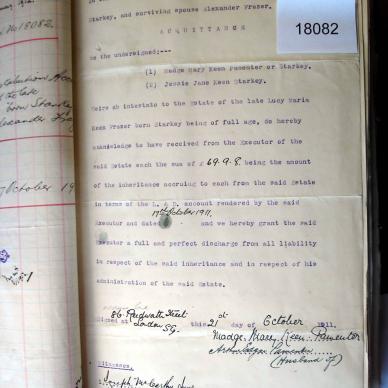 Starkey, and surviving spouse Alexander Frazer.
18082
No 18082.
ACQUITTANCE
We the undersigned;---
(1) Madge Mary Keen Pamenter or Starkey.
(2) Jessie Jane Keen Starkey.
Heirs ab intestato to the Estate of the late Lucy Maria
Keen Frazer born Starkey being of full age, do hereby
acknowledge to have received from the Executor of the
said Estate each the sum of £ 69.9.8. being the amount
of the inheritance accruing to each from the said Estate
in terms of the L. & D. account rendered by the said
17th October 1911.
Executor and dated and we hereby grant the said
Executor a full and perfect discharge from all liability
in respect of the said inheritance and in respect of his
administration of the said Estate.
October 19
86 Street
London
Signed at this 21st day of October 1911.
Madge Mary Keen Pamenter
Pamenter
(Husband of)
Witnesses.
Joseph McCarthy